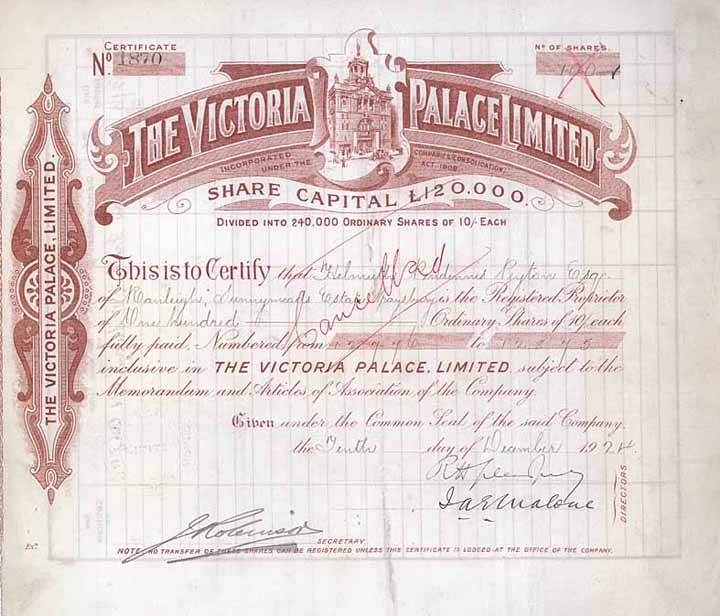 CERTIFICATE
No. 1870
No OF SHARES.
100
THE VICTORIA PALACE LIMITED
INCORPORATED UNDER THE COMPANIES (CONSOLIDATION) ACT, 1908
SHARE CAPITAL £120,000.
DIVIDED INTO 240,000 ORDINARY SHARES OF 10/- EACH
This is to Certify that Esqr.
of is the Registered Proprietor
of One Hundred Ordinary Shares of 10/- each
fully paid, Numbered from to
inclusive in THE VICTORIA PALACE, LIMITED, subject to the
Memorandum and Articles of Association of the Company.
Cancelled
Given under the Common Seal of the said Company
the Tenth day of December 1924
DIRECTORS
SECRETARY.
Exd.
NOTE, NO TRANSFER OF THESE SHARES CAN BE REGISTERED UNLESS THIS CERTIFICATE IS LODGED AT THE OFFICE OF THE COMPANY.
THE VICTORIA PALACE, LIMITED.